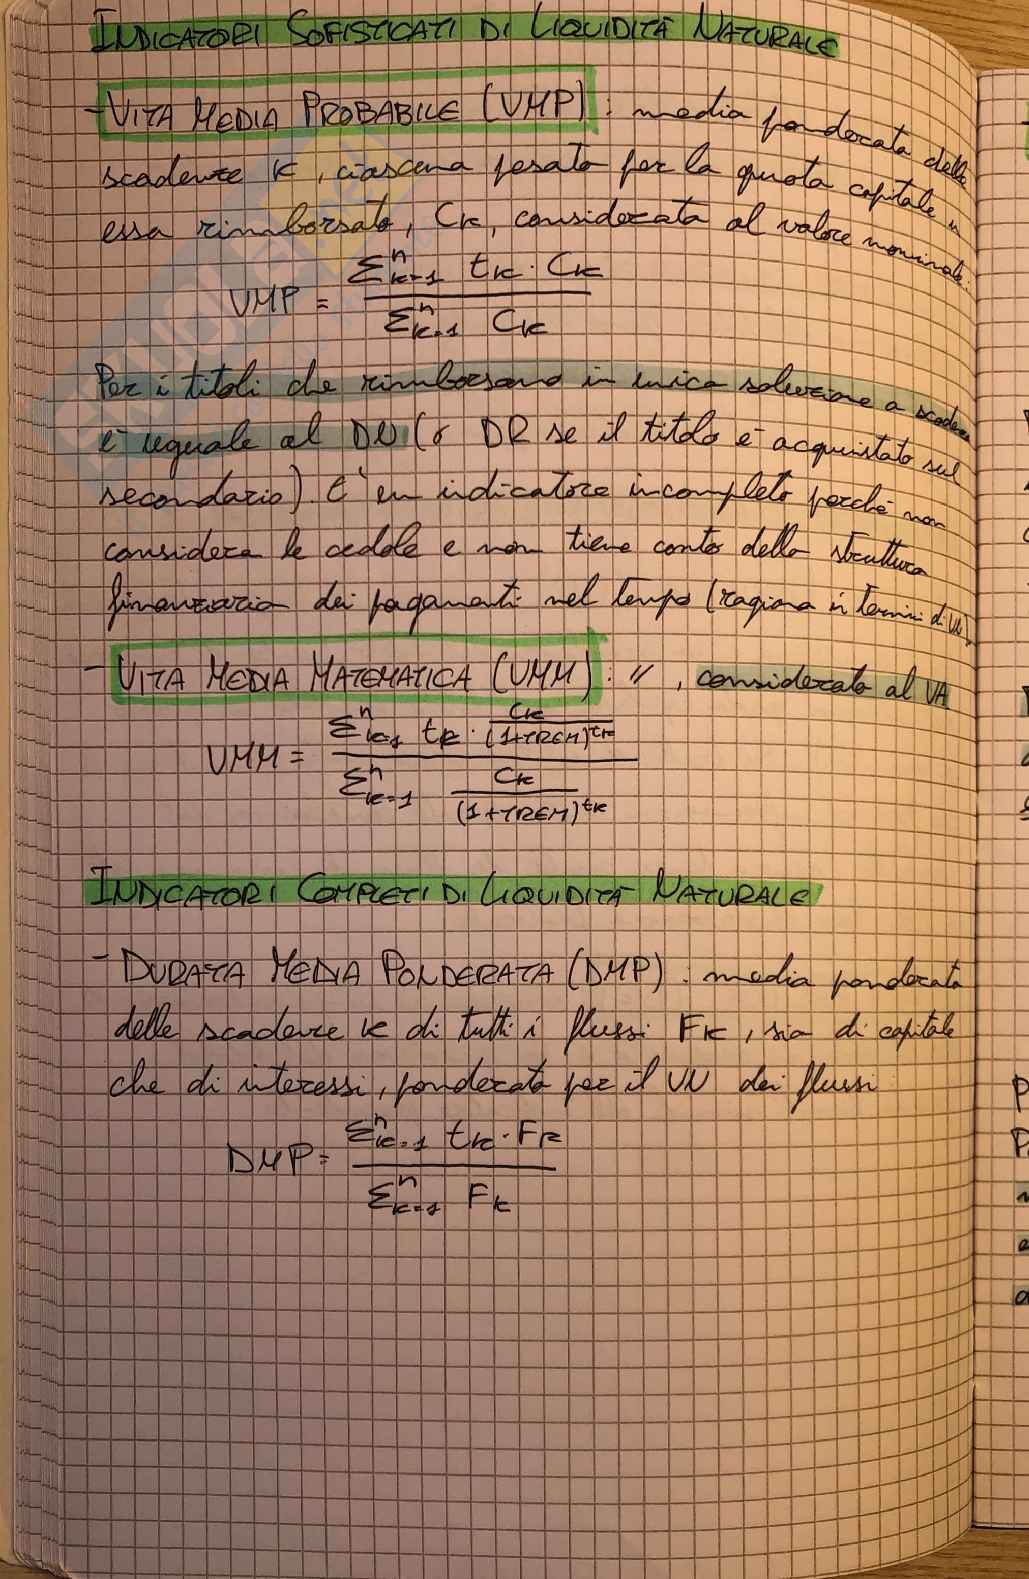 INDICATORI SOFISTICATI DI LIQUIDITÀ NATURALE
- VITA MEDIA PROBABILE (VMP): media ponderata delle
scadenze K, ciascuna pesata per la quota capitale in
essa rimborsata, CK, considerata al valore nominale.
VMP = Σⁿk=1 tk · Ck / Σⁿk=1 Ck
Per i titoli che rimborsano in unica soluzione a scadenza
è uguale al DN (o DR se il titolo è acquistato sul
secondario). E' un indicatore incompleto perché non
considera le cedole e non tiene conto della struttura
finanziaria dei pagamenti nel tempo (ragiona in termini di VN).
- VITA MEDIA MATEMATICA (VMM): // , considerata al VA
VMM = Σⁿk=1 tk · Ck/(1+TREM)^tk / Σⁿk=1 Ck/(1+TREM)^tk
INDICATORI COMPLETI DI LIQUIDITÀ NATURALE
- DURATA MEDIA PONDERATA (DMP): media ponderata
delle scadenze k di tutti i flussi Fk, sia di capitale
che di interessi, ponderata per il VN dei flussi
DMP = Σⁿk=1 tk · Fk / Σⁿk=1 Fk